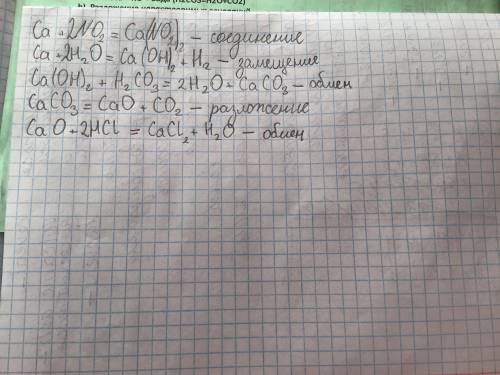 (H2CO3=H2O+CO2)
Ca + 2NO2 = Ca(NO2)2 – соединение
Ca + 2H2O = Ca(OH)2 + H2 – замещение
Ca(OH)2 + H2CO3 = 2H2O + CaCO3 – обмен
CaCO3 = CaO + CO2 – разложение
CaO + 2HCl = CaCl2 + H2O – обмен